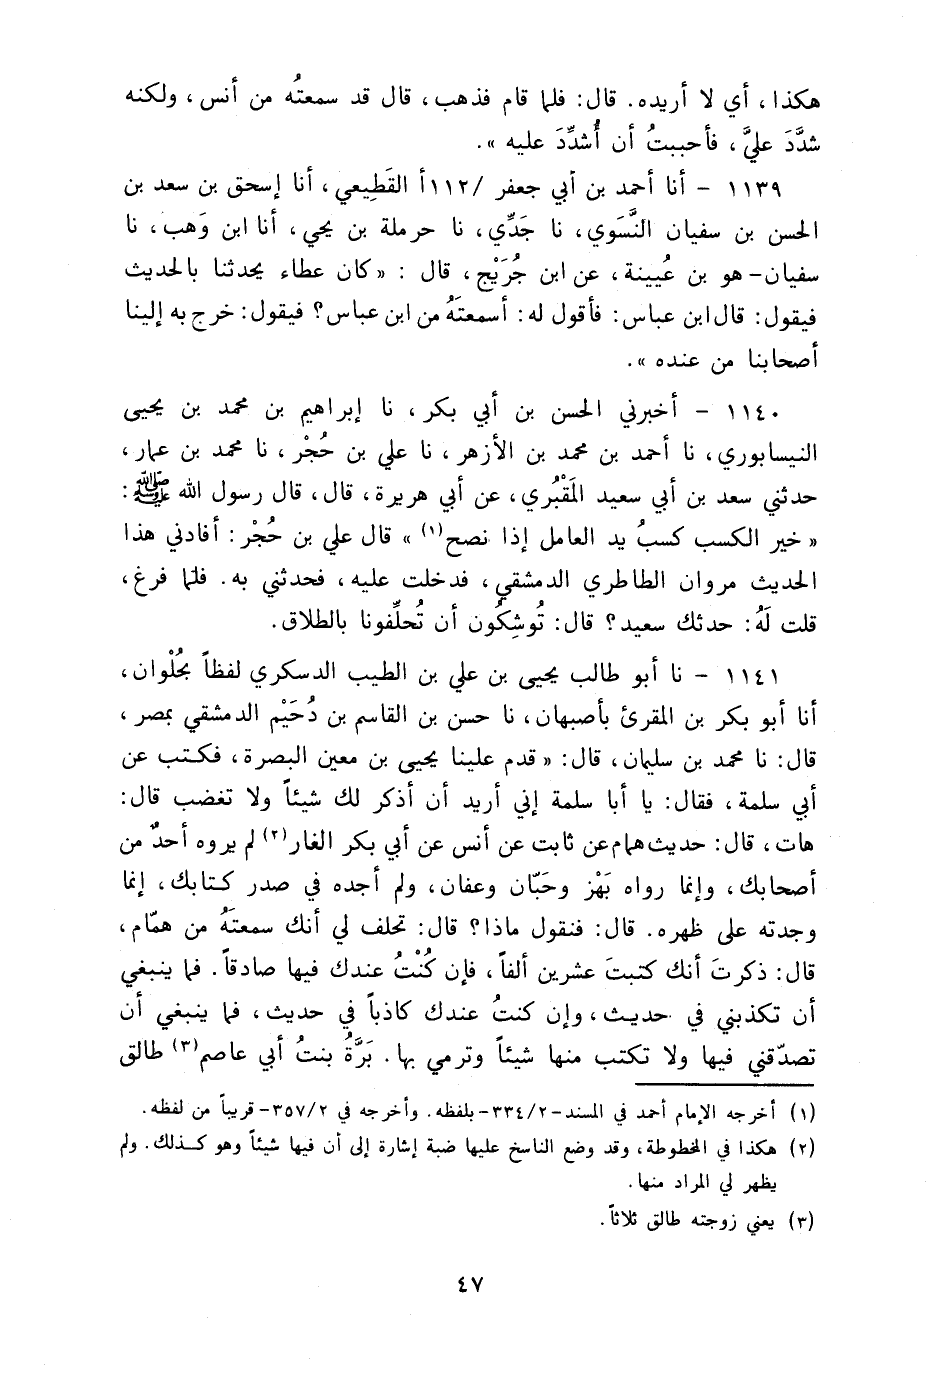 هكذا، أي لا أريده. قال: فلما قام فذهب، قال قد سمعتُه من أنس، ولكنه
شدَّدَ عليَّ، فأحببتُ أن أُشدِّدَ عليه».
١١٣٩ - أنا أحمد بن أبي جعفر /١١٢أ القَطِيعي، أنا إسحق بن سعد بن
الحسن بن سفيان النَّسَوي، نا جَدِّي، نا حرملة بن يحي، أنا ابن وَهب، نا
سفيان- هو بن عُيينة، عن ابن جُرَيْج، قال: «كان عطاء يحدثنا بالحديث
فيقول: قال ابن عباس: فأقول له: أسمعتَهُ من ابن عباس؟ فيقول: خرج به إلينا
أصحابنا من عنده».
١١٤٠ - أخبرني الحسن بن أبي بكر، نا إبراهيم بن محمد بن يحيى
النيسابوري، نا أحمد بن محمد بن الأزهر، نا علي بن حُجْر، نا محمد بن عمار،
حدثني سعد بن أبي سعيد المَقْبُري، عن أبي هريرة، قال، قال رسول الله ﷺ:
«خير الكسب كسبُ يد العامل إذا نصح(١)» قال علي بن حُجْر: أفادني هذا
الحديث مروان الطاطري الدمشقي، فدخلت عليه، فحدثني به. فلما فرغ،
قلت لَهُ: حدثك سعيد؟ قال: تُوشِكُون أن تُحلِّفونا بالطلاق.
١١٤١ - نا أبو طالب يحيى بن علي بن الطيب الدسكري لفظاً بحُلْوان،
أنا أبو بكر بن المقرئ بأصبهان، نا حسن بن القاسم بن دُحَيْم الدمشقي بمصر،
قال: نا محمد بن سليمان، قال: «قدم علينا يحيى بن معين البصرة، فكتب عن
أبي سلمة، فقال: يا أبا سلمة إني أريد أن أذكر لك شيئاً ولا تغضب قال:
هات، قال: حديث همام عن ثابت عن أنس عن أبي بكر الغار(٢) لم يروه أحدٌ من
أصحابك، وإنما رواه بَهْز وحَبّان وعفان، ولم أجده في صدر كتابك، إنما
وجدته على ظهره. قال: فنقول ماذا؟ قال: تحلف لي أنك سمعتَهُ من همّام،
قال: ذكرتَ أنك كتبتَ عشرين ألفاً، فإن كُنْتُ عندك فيها صادقاً. فما ينبغي
أن تكذبني في حديث، وإن كنتُ عندك كاذباً في حديث، فما ينبغي أن
تصدّقني فيها ولا تكتب منها شيئاً وترمي بها. بَرَّةُ بنتُ أبي عاصم(٣) طالق
(١) أخرجه الإمام أحمد في المسند -٢/ ٣٣٤- بلفظه. وأخرجه في ٢/ ٣٥٧- قريباً من لفظه.
(٢) هكذا في المخطوطة، وقد وضع الناسخ عليها ضبة إشارة إلى أن فيها شيئاً وهو كذلك. ولم
يظهر لي المراد منها.
(٣) يعني زوجته طالق ثلاثاً.
٤٧